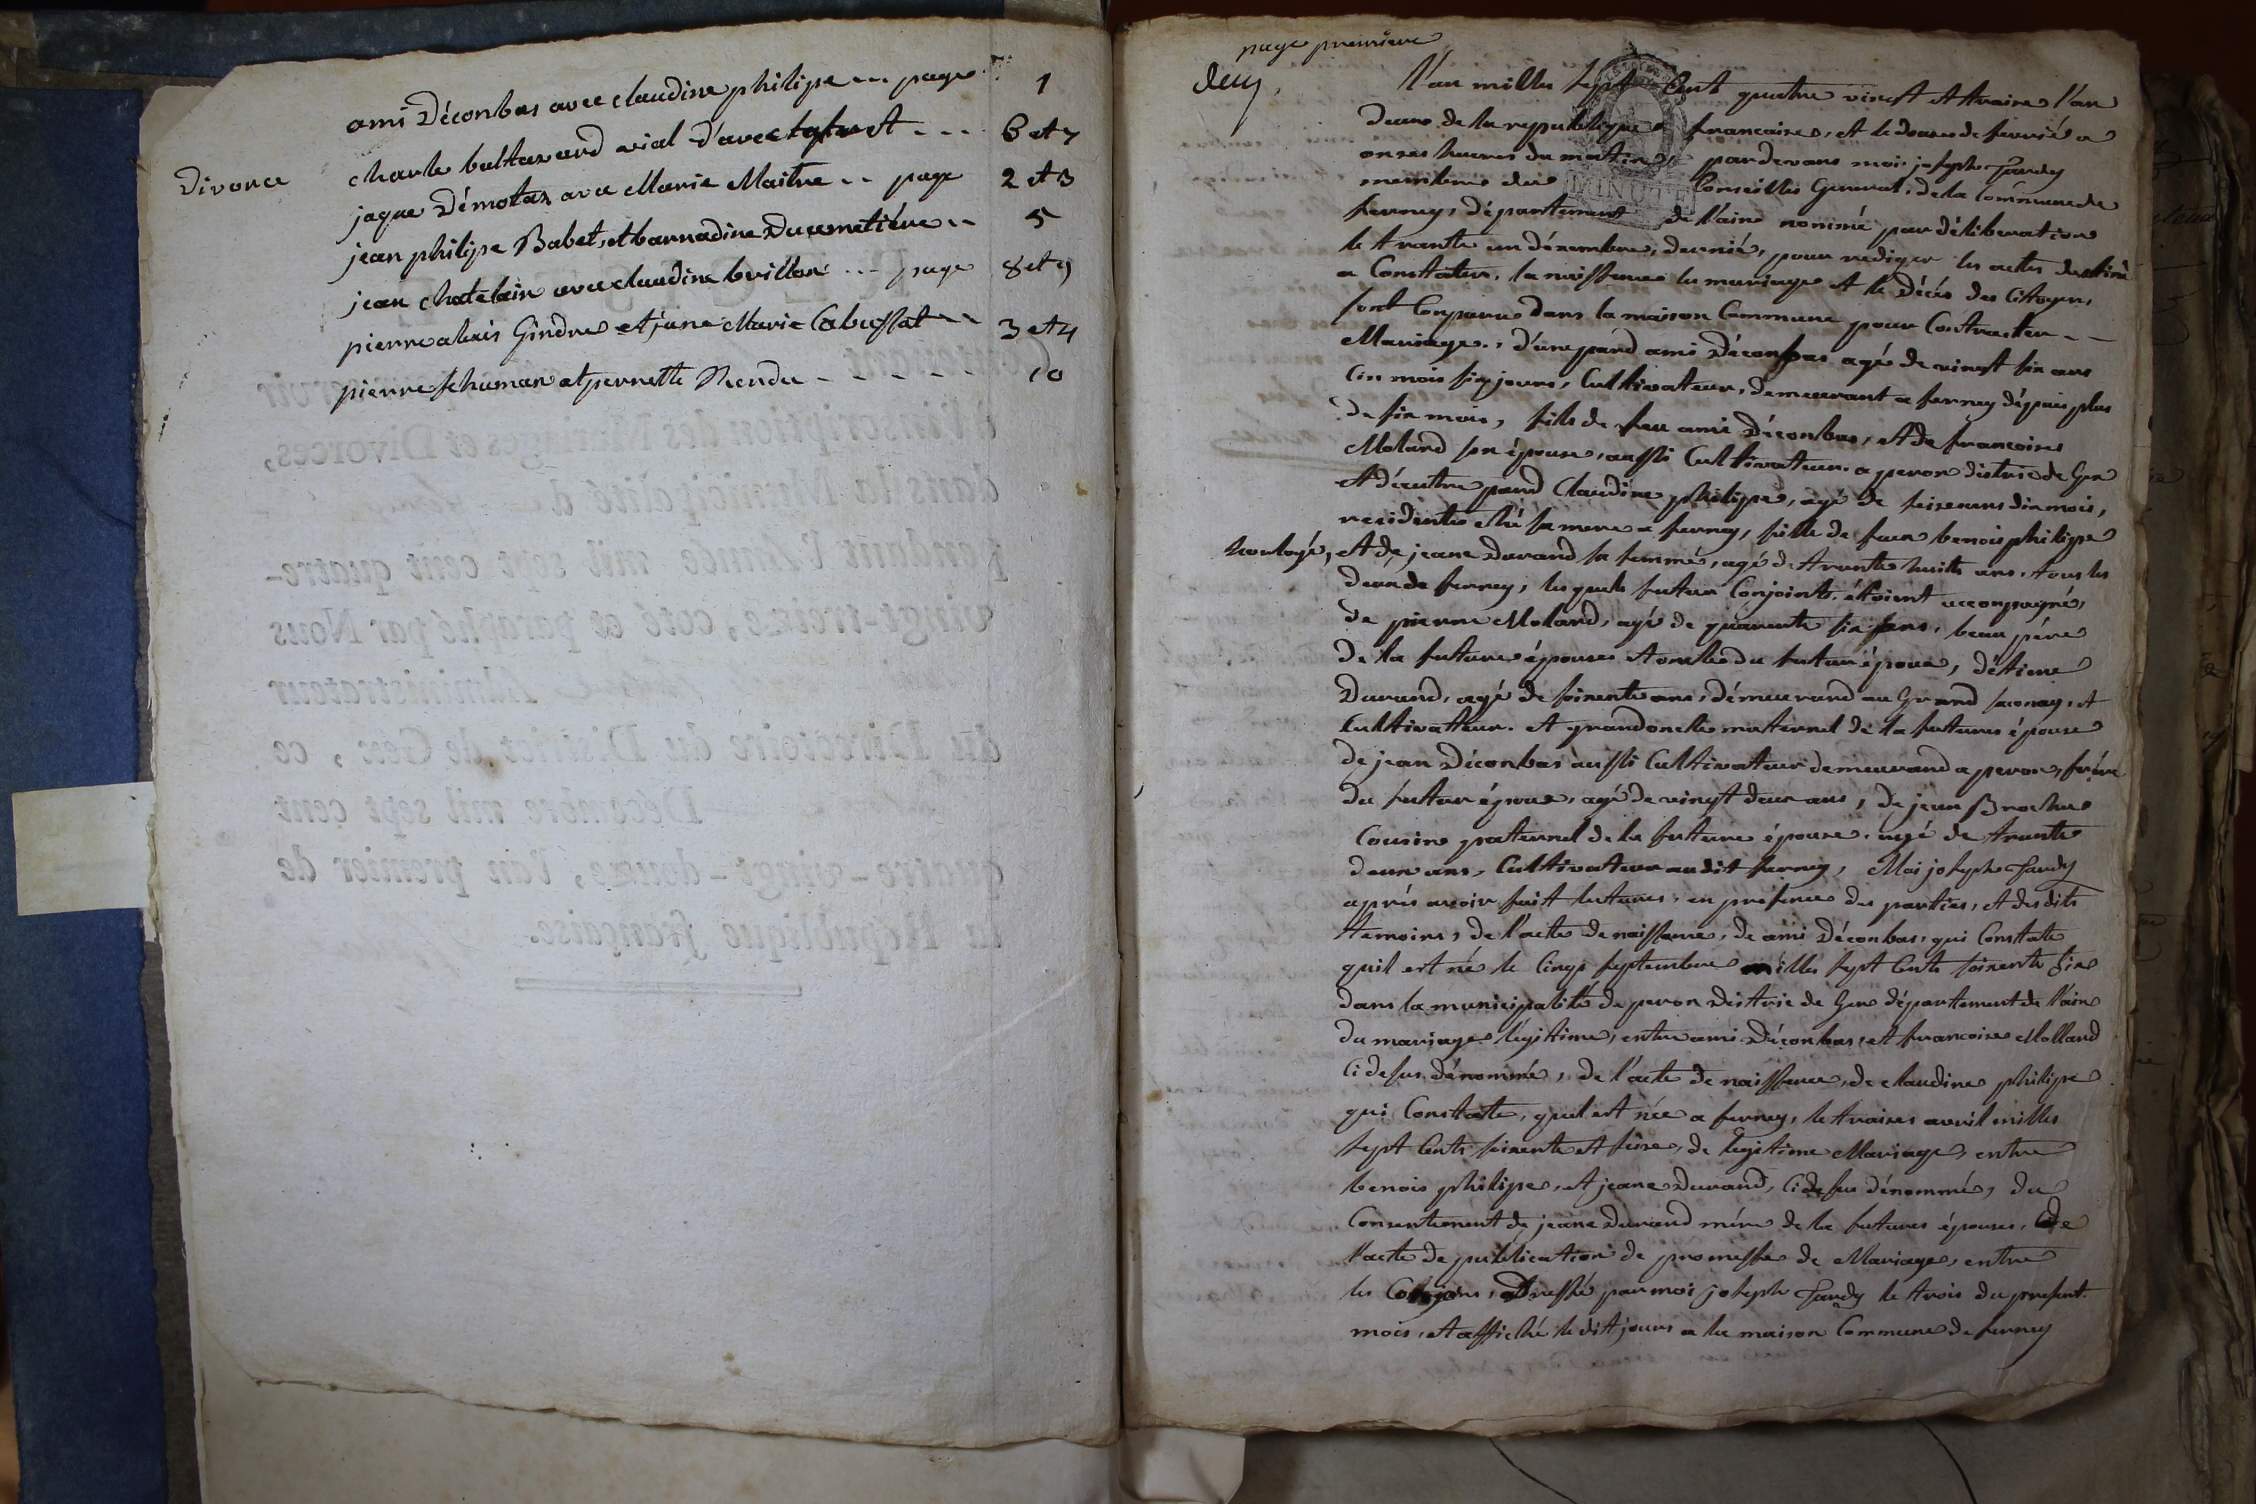 ami Déconbas avec claudine philipe --- page 1
Divorce charle baltazard vial d'avec --- 6 et 7
jaque Démotaz avec Marie Maitre -- page 2 et 3
jean philipe Babet, et barnadine Ducemetiére -- 5
jean chatelain avec claudine brillon --- page 8 et 9
pierre alexis Gindre et jane Marie Cabussat -- 3 et 4
pierre schuman et pernette Rendu - - - - - 10
page premiere
deux
l'an milles sept Cent quatre vingt et traize l'an
deuxe de la republique francaise, et le douze de fevrié a
onzes heures du matin, pardevans moi joseph Tardy
membre du Conseille General de la Commune de
MINUTE
ferney, département de l'ain nommé par déliberation
le trante un décembre, dernié, pour rediger les actes destiné
a Constater, la naissance les mariage et le Décés des Citoyens,
sont Conparus dans la maison Commune pour Contracter --
Mariage, d'une pard ami Déconbas agé de vingt six ans
Cin mois six jours, Cultivateur, demeurant a ferney dépuis plus
de six mois, fils de feu ami Déconbas, et de francoise
Moland son épouse, aussi Cultivateur a peron distric de Gex
et d'cautre pard Claudine philipe, agé de seize ans dix mois,
residente ché sa mere a ferney, fille de feux benois philipe
horlogé, et de jeane Durand sa femme, agé de trante huits ans, tous les
deux de ferney, les quels futur Conjoints étoient acconpagné,
de pierre Moland, agé de quarante six ans, beau pére
de la future épouse et oncle du futur époux, détiene
Durand, agé de soixente ans, démeurand au Grand saconay, et
Cultivatteur. et grand oncle maternel dé la future épouse
de jean Déconbas aussi Cultivateur demeurand a peron, frére
du futur époux, agé de vingt deux ans, de jean Brochue
Cousin paternel de la future épouse, agé de trante
deux ans, Cultivateur audit ferney, Moi joseph Tardy
aprés avoir fait lecture, en présence des parties, et des dits
témoins, de l'acte de naissance, de ami Déconbas, qui Constate
quil est né le Cinqs septembre milles sept Cents soixente six
dans la municipalité de peron distric de Gex département de l'ain
du mariage légitime, entre ami Déconbas, et francoise Molland
Ci desus dénommé, de l'acte de naissance, de claudine philipe
qui Constate, quel est née a ferney, le traize avril milles
sept Cents soixente et séze, de legitime Mariage, entre
benois philipe, et jeane Durand, Ci desus dénommé, du
Consentement de jeane Durand mére de la future épouse, de
l'acte de publication de promesse de Mariage, entre
les Conjoins, dressé par moi joseph Tardy le trois du present
mois, et affiché le dit jours a la maison Commune de ferney